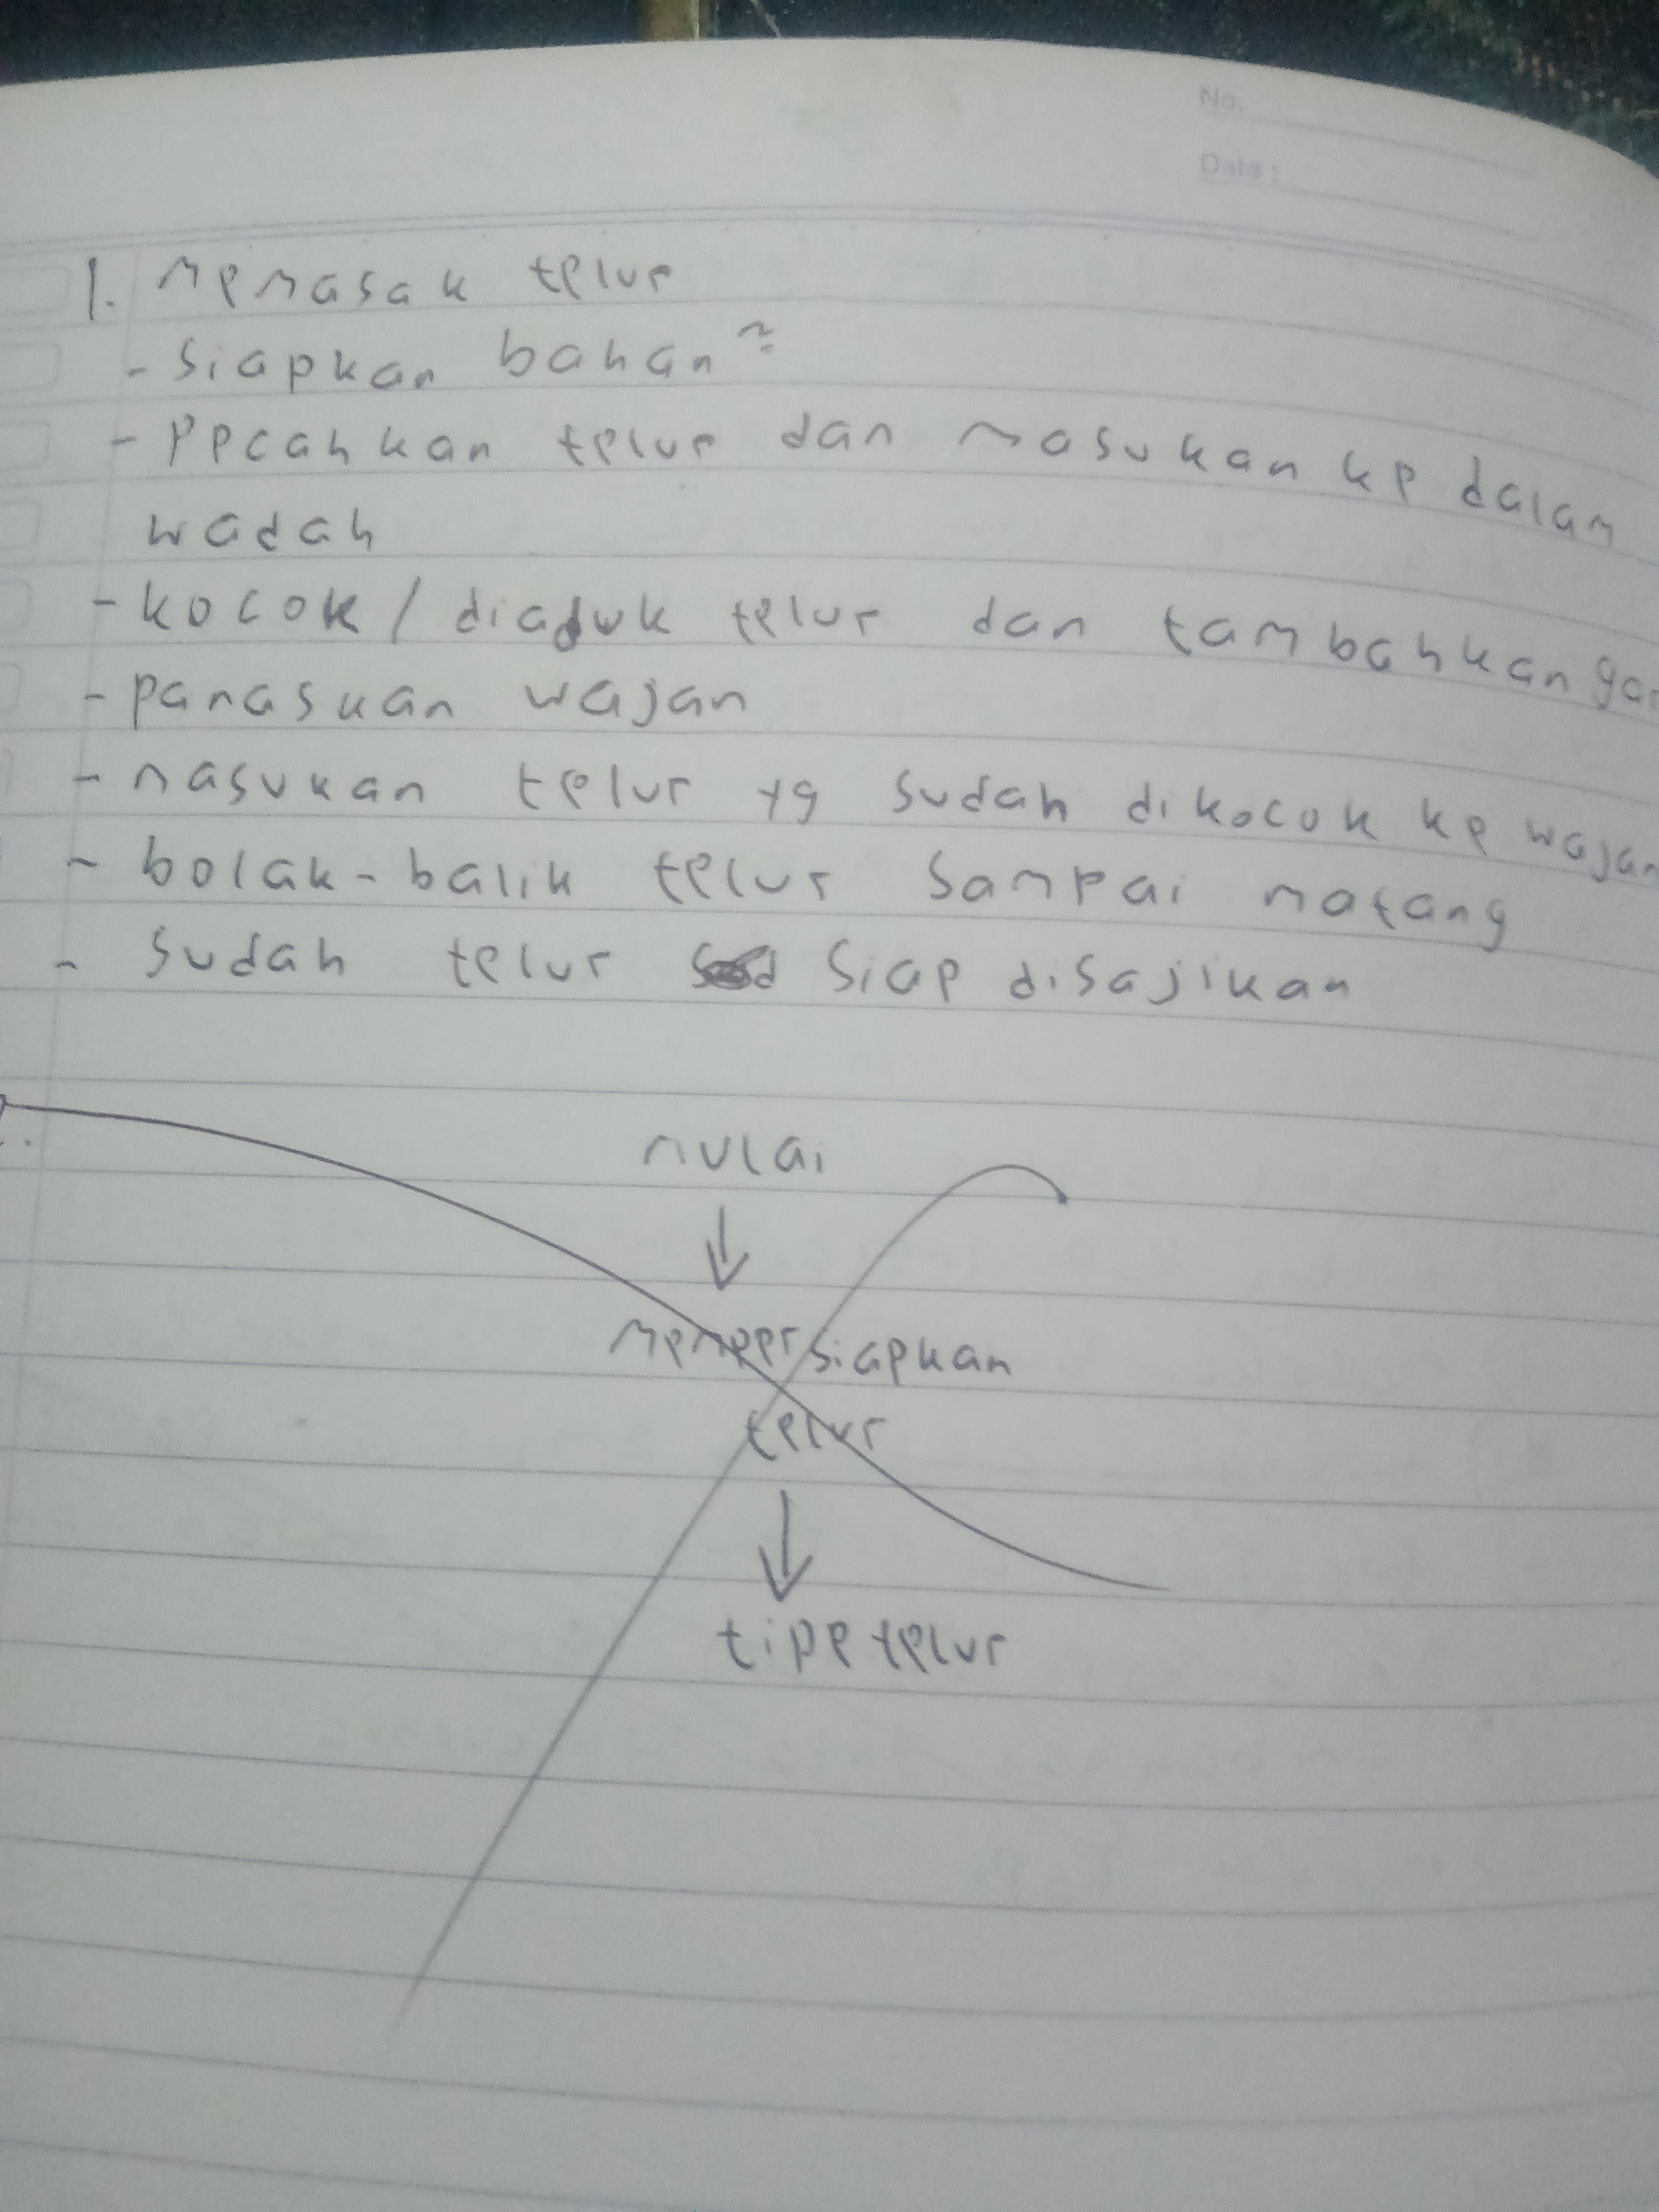 No.
Date :
1. Memasak telur
- Siapkan bahan²
- Pecahkan telur dan masukan ke dalam
wadah
- kocok / diaduk telur dan tambahkan gar
- panaskan wajan
- masukan telur yg sudah dikocok ke wajan
- bolak-balik telur sampai matang
- Sudah telur siap disajikan
2.
mulai
↓
mempersiapkan
telur
↓
tipe telur